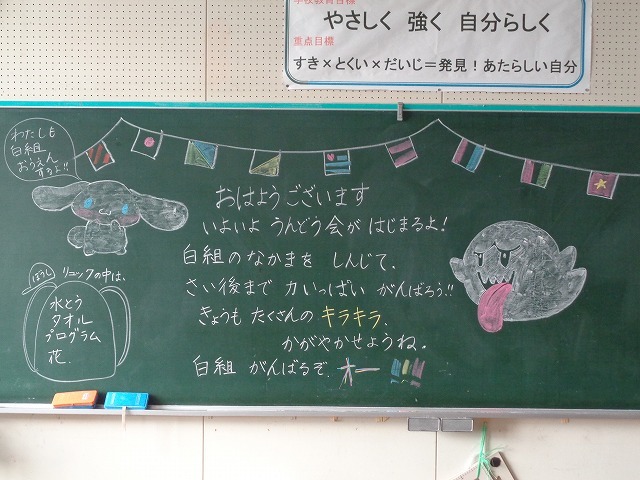 学校教育目標
やさしく 強く 自分らしく
重点目標
すき×とくい×だいじ=発見!あたらしい自分
わたしも
白組
おうえん
するよ!!
おはようございます
いよいよ うんどう会が はじまるよ!
白組のなかまを しんじて、
さい後まで 力いっぱい がんばろう!!
きょうも たくさんの キラキラ、
かがやかせようね。
白組 がんばるぞ オー !!!
ぼうし
リュックの中は、
水とう
タオル
プログラム
花